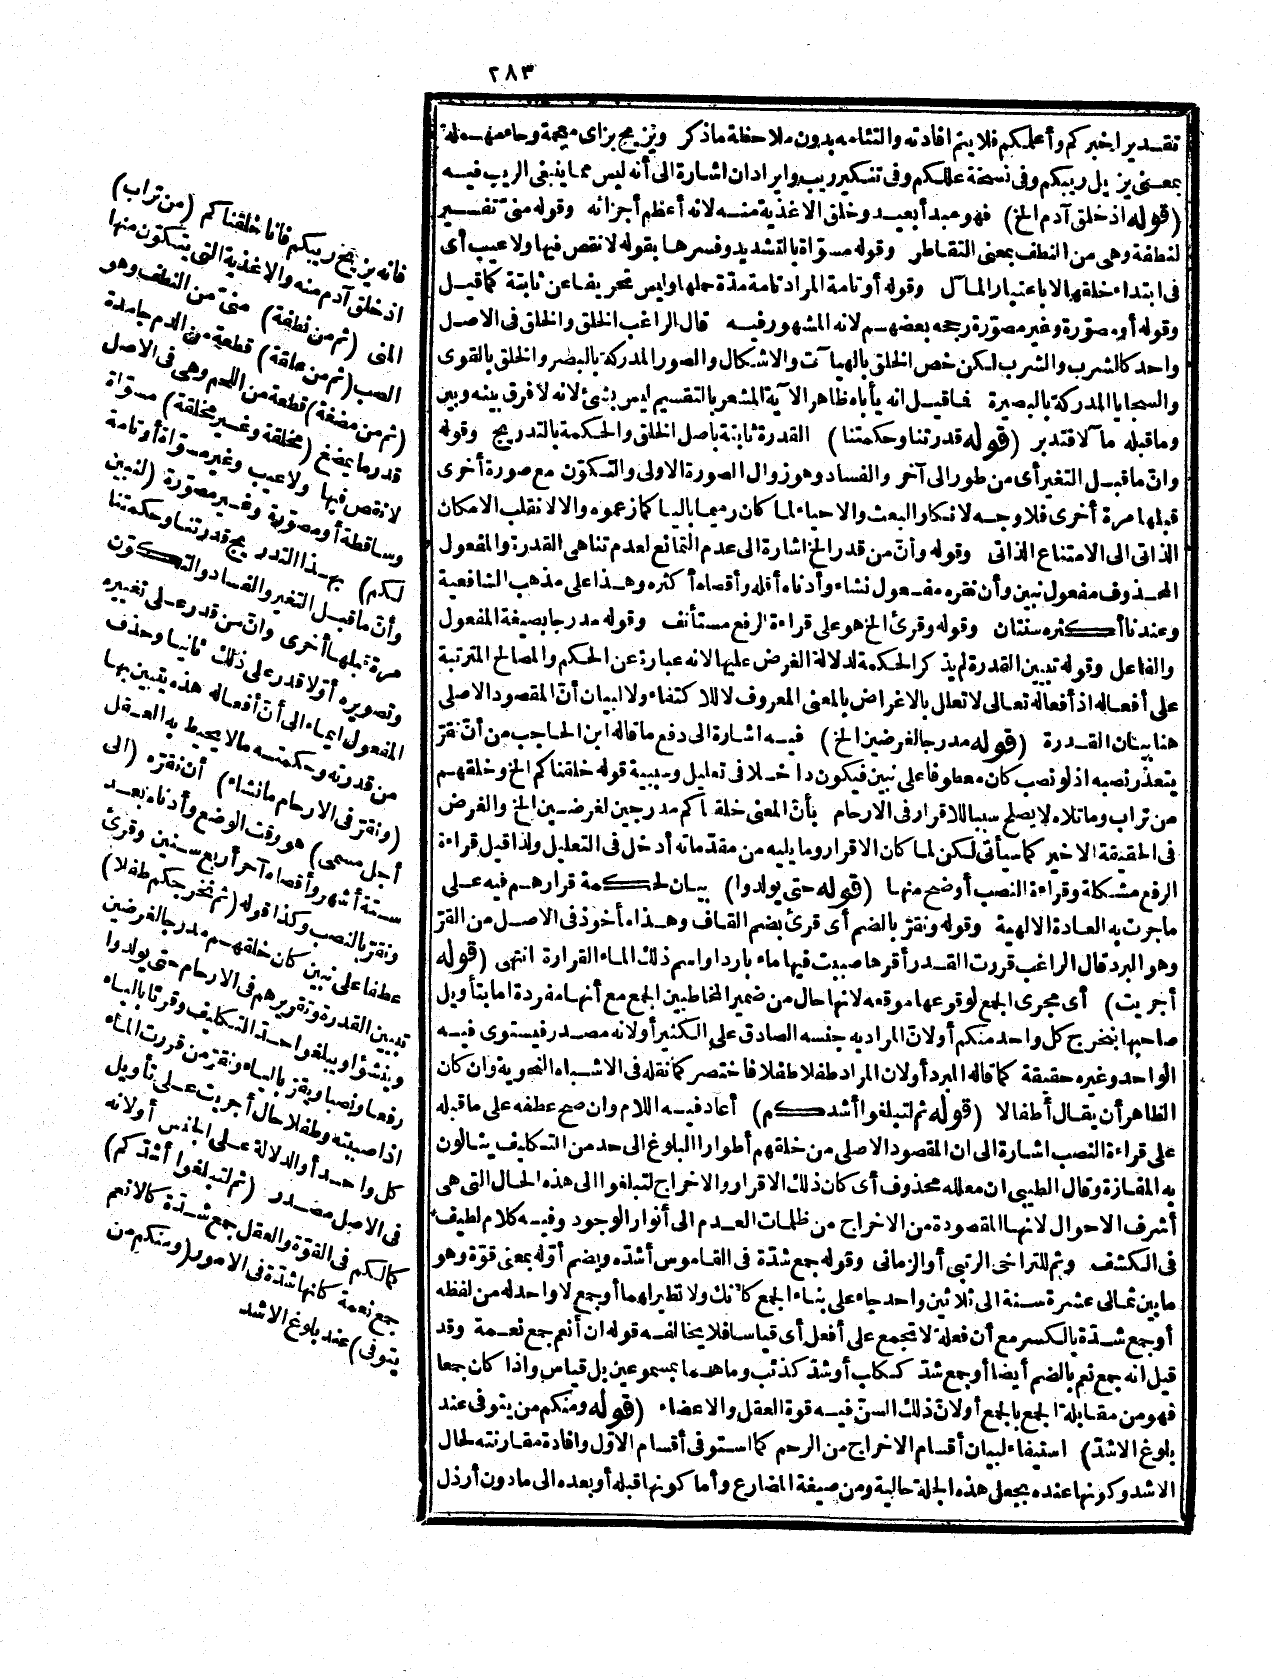 ٢٨٣
تقدير اخبركم وأعلمكم فلا يتم افادته والتئامه بدون ملاحظة ماذكر ويزيح بزاى معجمة وحاء مهملة
بمعنى يزيل ريبكم وفى نسخة علمكم وفى تنكير ريب وايراد ان اشارة الى أنه ليس مما ينبغى الريب فيه
(قوله اذ خلق آدم الخ) فهو مبدأ بعيد وخلق الاغذية منه لانه أعظم أجزائه وقوله منىّ تفسير
لنطفة وهى من النطف بمعنى التقاطر وقوله مسوّاة بالتشديد وفسرها بقوله لا نقص فيها ولا عيب أى
فى ابتداء خلقها لا باعتبار المآل وقوله أو تامة المراد تامة مدّة حملها وليس تحريفا عن ثابتة كما قيل
وقوله أو مصوّرة وغير مصوّرة رجحه بعضهم لانه المشهور فيه قال الراغب الخلق والخلق فى الاصل
واحد كالشرب والشرب لكن خص الخلق بالهيآت والاشكال والصور المدركة بالبصر والخلق بالقوى
والسجايا المدركة بالبصيرة فما قيل انه يأباه ظاهر الآية المشعر بالتقسيم ليس بشئ لانه لا فرق بينه وبين
وما قبله مآلا فتدبر (قوله قدرتنا وحكمتنا) القدرة ثابتة باصل الخلق والحكمة بالتدريج وقوله
وانّ ما قبل التغير أى من طور الى آخر والفساد وهو زوال الصورة الاولى والتكوّن مع صورة أخرى
قبلها مرة أخرى فلا وجه لانكار البعث والاحياء لما كان رميما باليا كما زعموه والا لانقلب الامكان
الذاتى الى الامتناع الذاتى وقوله وأنّ من قدر الخ اشارة الى عدم التمانع لعدم تناهى القدرة والمفعول
المحذوف مفعول نبين وأن نقره مفعول نشاء وأدناه أقله وأقصاه أكثره وهذا على مذهب الشافعية
وعندنا أكثره سنتان وقوله وقرئ الخ هو على قراءة الرفع مستأنف وقوله مدرجا بصيغة المفعول
والفاعل وقوله تبيين القدرة لم يذكر الحكمة لدلالة الغرض عليها لانه عبارة عن الحكم والمصالح المترتبة
على أفعاله اذ أفعاله تعالى لا تعلل بالاغراض بالمعنى المعروف لا للاكتفاء ولا لبيان أنّ المقصود الاصلى
هنا بيان القدرة (قوله مدرجا لغرضين الخ) فيه اشارة الى دفع ما قاله ابن الحاجب من أنّ نقرّ
يتعذر نصبه اذ لو نصب كان معطوفا على نبين فيكون داخلا فى تعليل وسببية قوله خلقناكم الخ وخلقهم
من تراب وما تلاه لا يصلح سببا للاقرار فى الارحام بأنّ المعنى خلقناكم مدرجين لغرضين الخ والغرض
فى الحقيقة الاخير كما سيأتى لكن لما كان الاقرار وما يليه من مقدماته أدخل فى التعليل ولذا قيل قراءة
الرفع مشكلة وقراءة النصب أوضح منها (قوله حتى يولدوا) بيان لحكمة قرارهم فيه على
ما جرت به العادة الالهية وقوله ونقرّ بالضم أى قرئ بضم القاف وهذا مأخوذ فى الاصل من القرّ
وهو البرد قال الراغب قررت القدر أقرها صببت فيها ماء باردا واسم ذلك الماء القرارة انتهى (قوله
أجريت) أى مجرى الجمع لوقوعها موقعه لانها حال من ضمير المخاطبين الجمع مع أنها مفردة اما بتأويل
صاحبها بنخرج كل واحد منكم أو لانّ المراد به جنسه الصادق على الكثير أو لانه مصدر فيستوى فيه
الواحد وغيره حقيقة كما قاله المبرد أو لان المراد طفلا طفلا فاختصر كما نقله فى الاشباه النحوية وان كان
الظاهر أن يقال أطفالا (قوله ثم لتبلغوا أشدكم) أعاد فيه اللام وان صح عطفه على ما قبله
على قراءة النصب اشارة الى ان المقصود الاصلى من خلقهم أطوارا البلوغ الى حد من التكليف ينالون
به المفازة وقال الطيبى ان معلله محذوف أى كان ذلك الاقرار والاخراج لتبلغوا الى هذه الحال التى هى
أشرف الاحوال لانها المقصودة من الاخراج من ظلمات العدم الى أنوار الوجود وفيه كلام لطيف
فى الكشف وثم للتراخى الرتبى أو الزمانى وقوله جمع شدّة فى القاموس أشدّه ويضم أوّله بمعنى قوّة وهو
ما بين ثمانى عشرة سنة الى ثلاثين واحد جاء على بناء الجمع كآنك ولا نظير لهما أو جمع لا واحد له من لفظه
أو جمع شدّة بالكسر مع أن فعلة لا تجمع على أفعل أى قياسا فلا يخالفه قوله ان أنعم جمع نعمة وقد
قيل انه جمع نعم بالضم أيضا أو جمع شدّ ككلب أو شدّ كذئب وما هما بمسموعين بل قياس واذا كان جمعا
فهو من مقابلة الجمع بالجمع أو لانّ ذلك السنّ فيه قوة العقل والاعضاء (قوله ومنكم من يتوفى عند
بلوغ الاشدّ) استيفاء لبيان أقسام الاخراج من الرحم كما استوفى أقسام الاوّل وافادة مقارنته لحال
الاشد وكونها عنده بجعل هذه الجملة حالية ومن صيغة المضارع وأما كونها قبله أو بعده الى ما دون أرذل
فانه يزيح ريبكم فانا خلقناكم (من تراب)
اذ خلق آدم منه والاغذية التى يتكوّن منها
المنى (ثم من نطفة) منىّ من النطف وهو
الصب (ثم من علقة) قطعة من الدم جامدة
(ثم من مضغة) قطعة من اللحم وهى فى الاصل
قدر ما يمضغ (مخلقة وغير مخلقة) مسوّاة
لا نقص فيها ولا عيب وغير مسوّاة أو تامة
وساقطة أو مصوّرة وغير مصوّرة (لنبين
لكم) بهذا التدريج قدرتنا وحكمتنا
وأنّ ما قبل التغير والفساد والتكوّن
مرة قبلها أخرى وانّ من قدر على تغييره
وتصويره أوّلا قدر على ذلك ثانيا وحذف
المفعول ايماء الى أنّ أفعاله هذه يتبين بها
من قدرته وحكمته ما لا يحيط به العقل
(ونقرّ فى الارحام ما نشاء) أن نقرّه (الى
أجل مسمى) هو وقت الوضع وأدناه بعد
ستة أشهر وأقصاه آخر أربع سنين وقرئ
ونقرّ بالنصب وكذا قوله (ثم نخرجكم طفلا)
عطفا على نبين كان خلقهم مدرجا لغرضين
تبيين القدرة وتقريرهم فى الارحام حتى يولدوا
وينشؤا ويبلغوا حد التكليف وقرئا بالياء
رفعا ونصبا ويقرّ بالياء ونقرّ من قررت الماء
اذا صببته وطفلا حال أجريت على تأويل
كل واحد أو الدلالة على الجنس أو لانه
فى الاصل مصدر (ثم لتبلغوا أشدّكم)
كمالكم فى القوّة والعقل جمع شدّة كالانعم
جمع نعمة كأنها شدّة فى الامور (ومنكم من
يتوفى) عند بلوغ الاشد